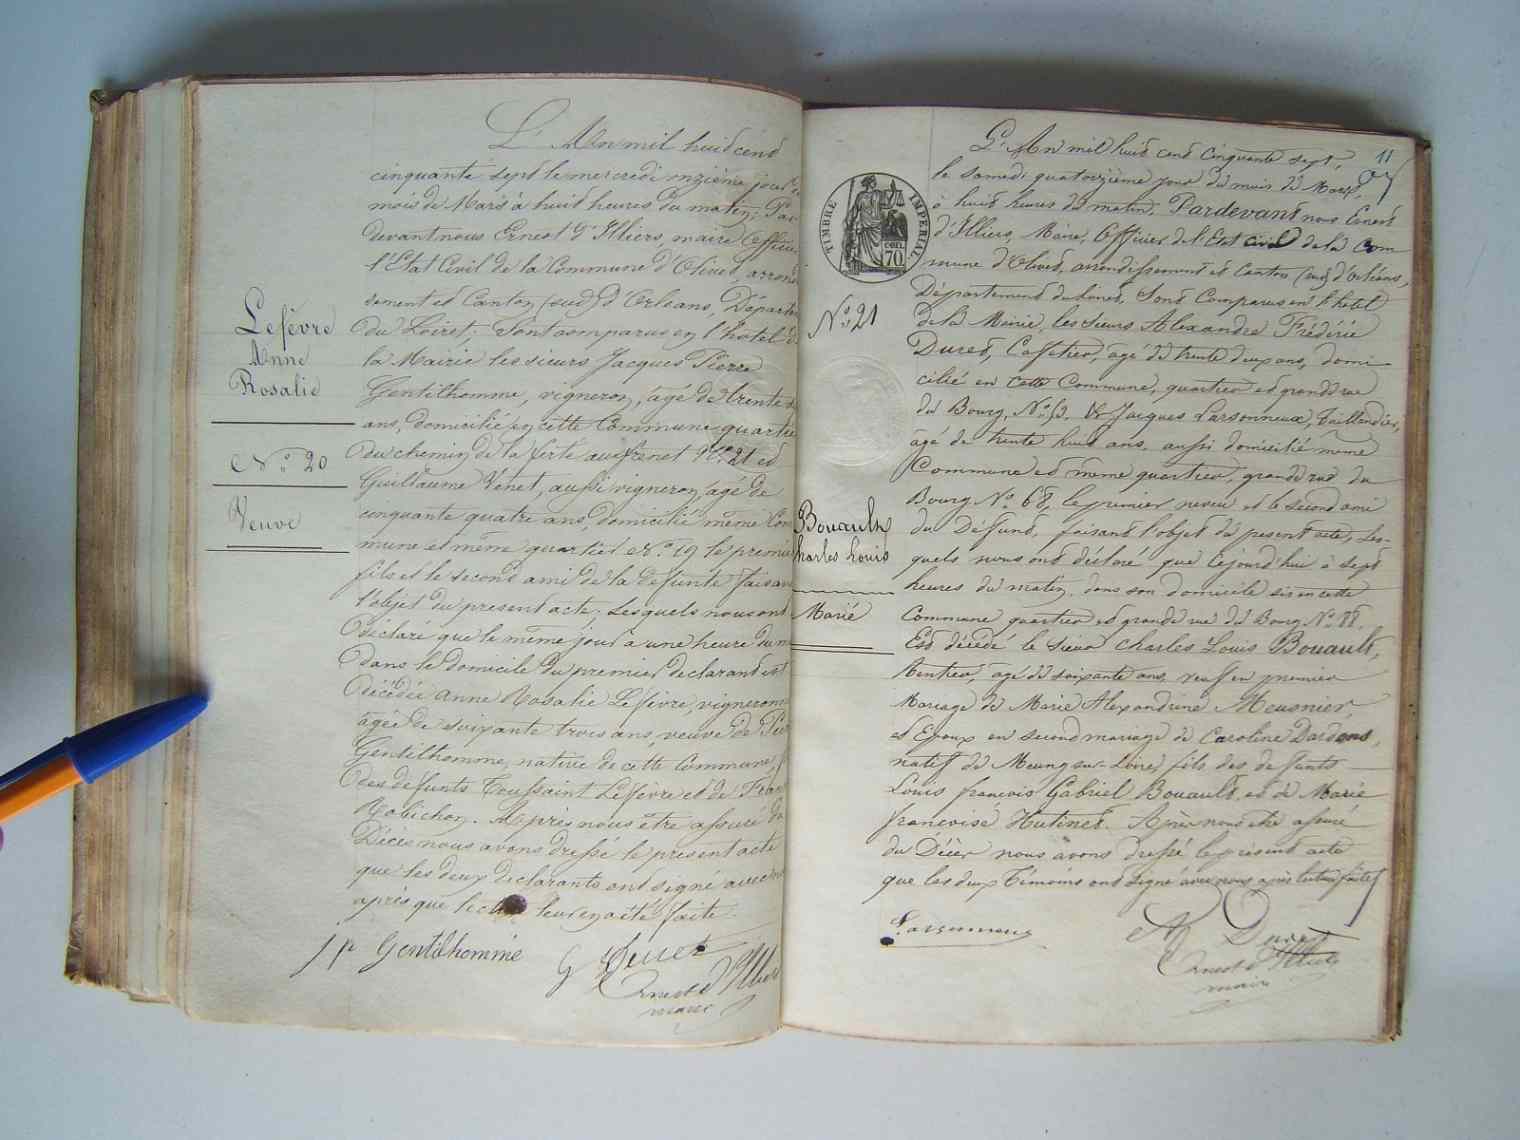 L'An mil huit cent
cinquante sept le mercredi onzième jour
mois de Mars à huit heures du matin; Par
devant nous Ernest d'Illiers, maire Officier
l'Etat Civil de la Commune d'Olivet, arron
sement et Canton (sud) d'Orléans, Départe
du Loiret; Sont comparus en l'hôtel de
la Mairie les sieurs Jacques Pierre
Gentilhomme, vigneron, âgé de trente
ans, domicilié en cette Commune quartier
du chemin de la ferté au N° 21 et
Guillaume Venet, aussi vigneron, âgé de
cinquante quatre ans, domicilié même Com
mune et même quartier N° 19 le premier
fils et le second ami de la defunte faisant
l'objet du present acte; Lesquels nous ont
déclaré que le même jour à une heure du m
dans le domicile du premier declarant est
décédée Anne Rosalie Lefèvre, vigneronne
âgée de soixante trois ans, veuve de Pier
Gentilhomme, native de cette Commune,
des defunts Toussaint Lefevre et de Fran
Robichon. Après nous être assuré du
Décès nous avons dressé le present acte
que les deux declarants ont signé avec nous
après que lecture leur en a été faite.
JP Gentilhomme G Venet
Ernest d'Illiers
maire
Lefévre
Anne
Rosalie
N° 20
Veuve
11
L'An mil huit cent cinquante sept,
le samedi quatorzième jour du mois de Mars,
à huit heures du matin, Pardevant nous Ernest
d'Illiers, Maire, Officier de l'Etat civil de la Com
mune d'Olivet, arrondissement et Canton (sud) d'Orléans,
Département du Loiret, Sont Comparus en l'hôtel
de la Mairie, les sieurs Alexandre Frédéric
Duret, Cafetier, âgé de trente deux ans, domi
cilié en cette Commune, quartier et grande rue
du Bourg, N° & Jacques Larsonneux, Taillandier,
âgé de trente huit ans, aussi domicilié même
Commune et même quartier, grande rue du
Bourg N° 68, le premier neveu et le second ami
du Défunt, faisant l'objet du present acte, Les-
quels nous ont déclaré que cejourd'hui à sept
heures du matin, dans son domicile sis en cette
Commune quartier et grande rue du Bourg N° 88.
Est décédé le sieur Charles Louis Bouault,
Rentier, âgé de soixante ans, veuf en premier
Mariage de Marie Alexandrine Meusnier,
et Epoux en second mariage de Caroline Dardons,
natif de Meung sur Loire, fils des defunts
Louis françois Gabriel Bouault et de Marie
françoise Hutinet. Après nous être assuré
du Décès nous avons dressé le présent acte
que les deux Témoins ont signé avec nous après lecture faite
Larsonneux A Duret
Ernest d'Illiers
maire
TIMBRE IMPERIAL
70
N° 21
Bouault
Charles Louis
Marié